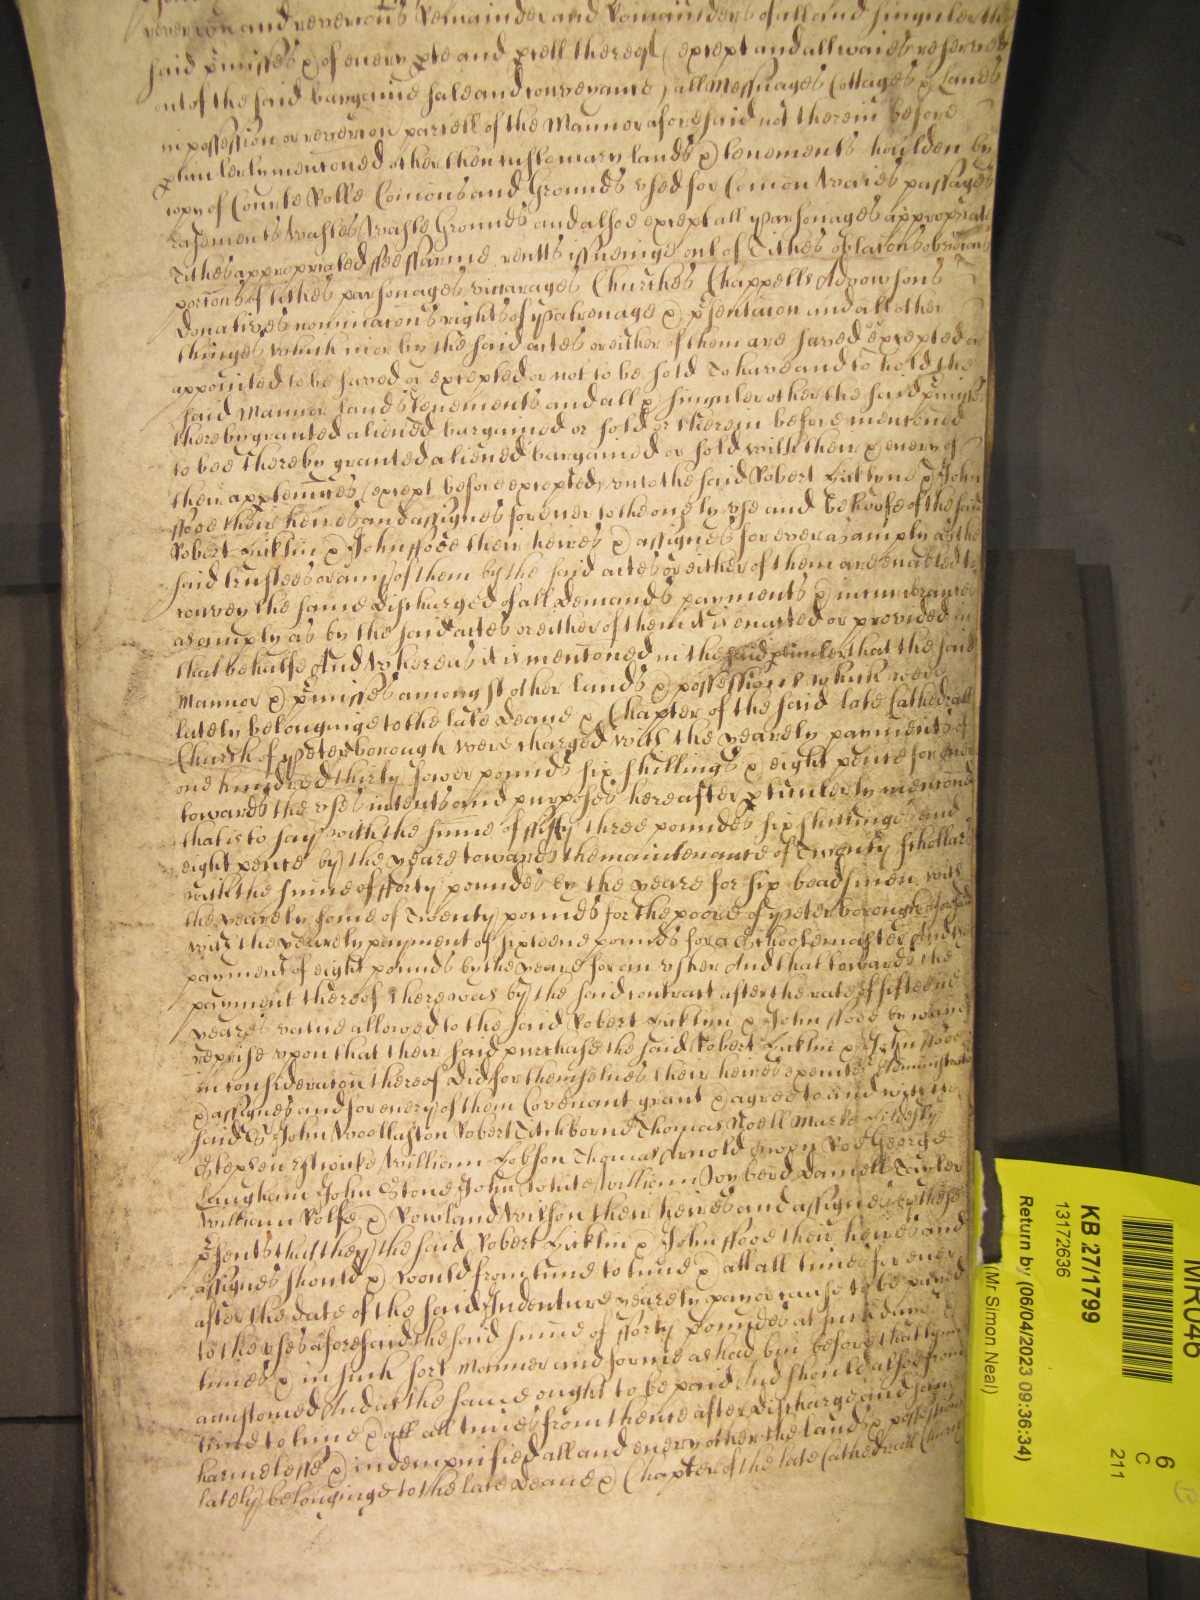 revercon and revercons Remainder and Remainders of all and singuler the
said p'misses & of every pte and pcell thereof (except and allwaies reserved
out of the said bargaine sale and conveyance) all Messuages Cottages & Lands
in possession or revercon parcell of the Mannor aforesaid not therein before
pticulerly menconed other then customary lands & tenements houlden by
copy of Courte Rolle Comons and Grounds vsed for Comon Waies passages
easements Wastes Waste Grounds and alsoe except all parsonages appropriate
Tithes appropriated ffee ffarme rentts issueinge out of Tithes oblacons obvencons
porcons of tithes parsonages vicarages Churches Chappells Advowsons
Donatives nominacons rights of patronage & p'sentacon and all other
things which in or by the said actes or either of them are saved excepted or
appointed to be saved or excepted or not to be sold To have and to hold the
said Mannor lands Tenements and all & singuler other the said p'misses
thereby granted aliened bargained or sold or therein before menconed
to bee thereby granted aliened bargained or sold with their & every of
their apptennces (except before excepted) vnto the said Robert & John
their heires and assignes for ever to the onely vse and behoofe of the said
Robert & John their heires & assignes for ever as amply as the
said trustees or any of them by the said actes or either of them are enabled to
convey the same Discharged of all Demands payments & incumbrances
as amply as by the said actes or either of them it is enacted or provided in
that behalfe And whereas it is menconed in the said that the said
Mannor & p'misses amongst other lands & possessions which were
lately belonginge to the late Deane & Chapter of the said late Cathedrall
Church of Peterborough were charged with the yearely payments of
one hundred thirty fower pounds six shillings & eight pence for ever
towards the vses intents and purposes hereafter pticulerly menconed
that is to say with the sume of ffifty three poundes six shillings and
eight pence by the yeare towards the maintenance of Twenty Schollars
with the sume of fforty poundes by the yeare for six beadsmen with
the yearely some of Twenty pounds for the poore of Peterborough aforesaid
with the yearely payment of sixteene pounds for a Schoolemaster And the
payment of eight pounds by the yeare for an vsher And that towards the
payment thereof there was by the said contract after the rate of fifteene
yeares value allowed to the said Robert & John by waie of
reprise vpon that their said purchase the said Robert & John
in consideracon thereof Did for themselves their heires executors Administrators
& assignes and for every of them Covenant grant & agree to and with the
said Sr John Woollaston Robert Titchborne Thomas Noell Marke Hildesly
Stephen Estwicke William Hobson Thomas Arnold Owen Roe George
Langham John Stone John White William Wyberd Daniell Tayler
William Rolfe & Rowland Wilson their heires and assignes by these
p'sents that they the said Robert & John their heires and
assignes should & would from time to time & att all times for ever
after the date of the said Indenture yearely pay or cause to be paied
to the vses aforesaid the said sume of fforty poundes at such daies &
times & in such sort Manner and forme as had bin before that tyme
accustomed And as the same ought to be paid And should alsoe from
time to time & att all times from thence after Discharge and save
harmelesse & indempnified all and every other the lands & possessions
lately belonginge to the late Deane & Chapter of the late Cathedrall Church
MR046
6
C
211
KB 27/1799
13172636
Return by (06/04/2023 09:36:34)
(Mr Simon Neal)